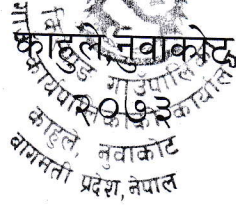 काहुले, नुवाकोट
२०७३
गाउँपालिका
कार्यपालिकाको कार्यालय
काहुले, नुवाकोट
बागमती प्रदेश, नेपाल